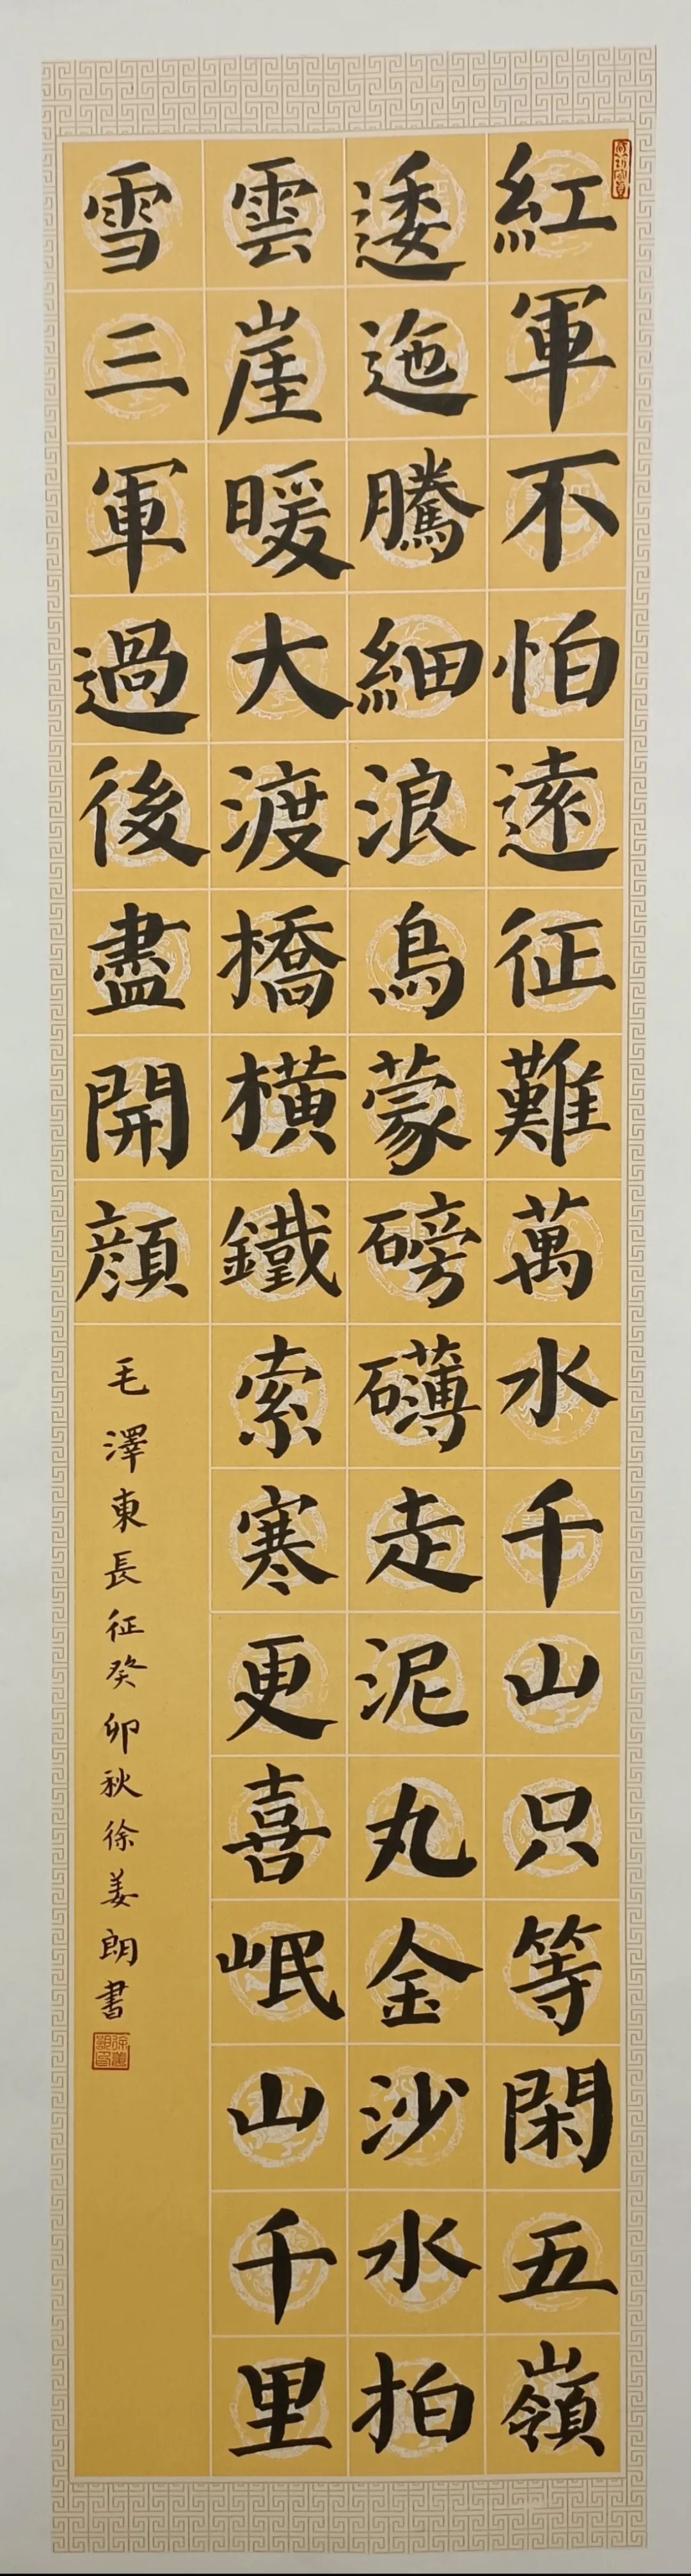 紅軍不怕遠征難萬水千山只等閑五嶺
逶迤騰細浪烏蒙磅礴走泥丸金沙水拍
雲崖暖大渡橋橫鐵索寒更喜岷山千里
雪三軍過後盡開顏
毛澤東長征癸卯秋徐姜朗書